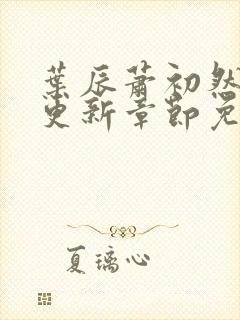 葉辰蕭初然
更新章節免
夏璃心